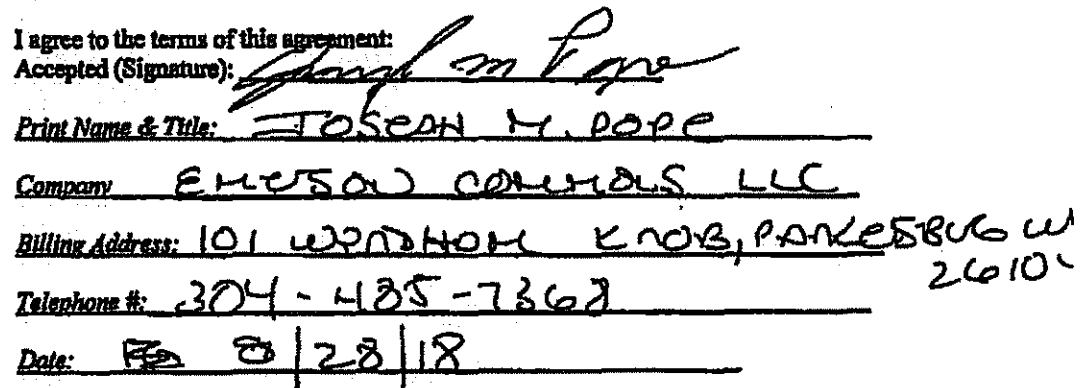 I agree to the terms of this agreement:
Accepted (Signature): Joseph M Pope
Print Name & Title: JOSEPH M. POPE
Company EMERSON CONTROLS LLC
Billing Address: 101 WYNDHAM KNOB, PARKERSBURG WV
26104
Telephone #: 304-485-7368
Date: 8/28/18